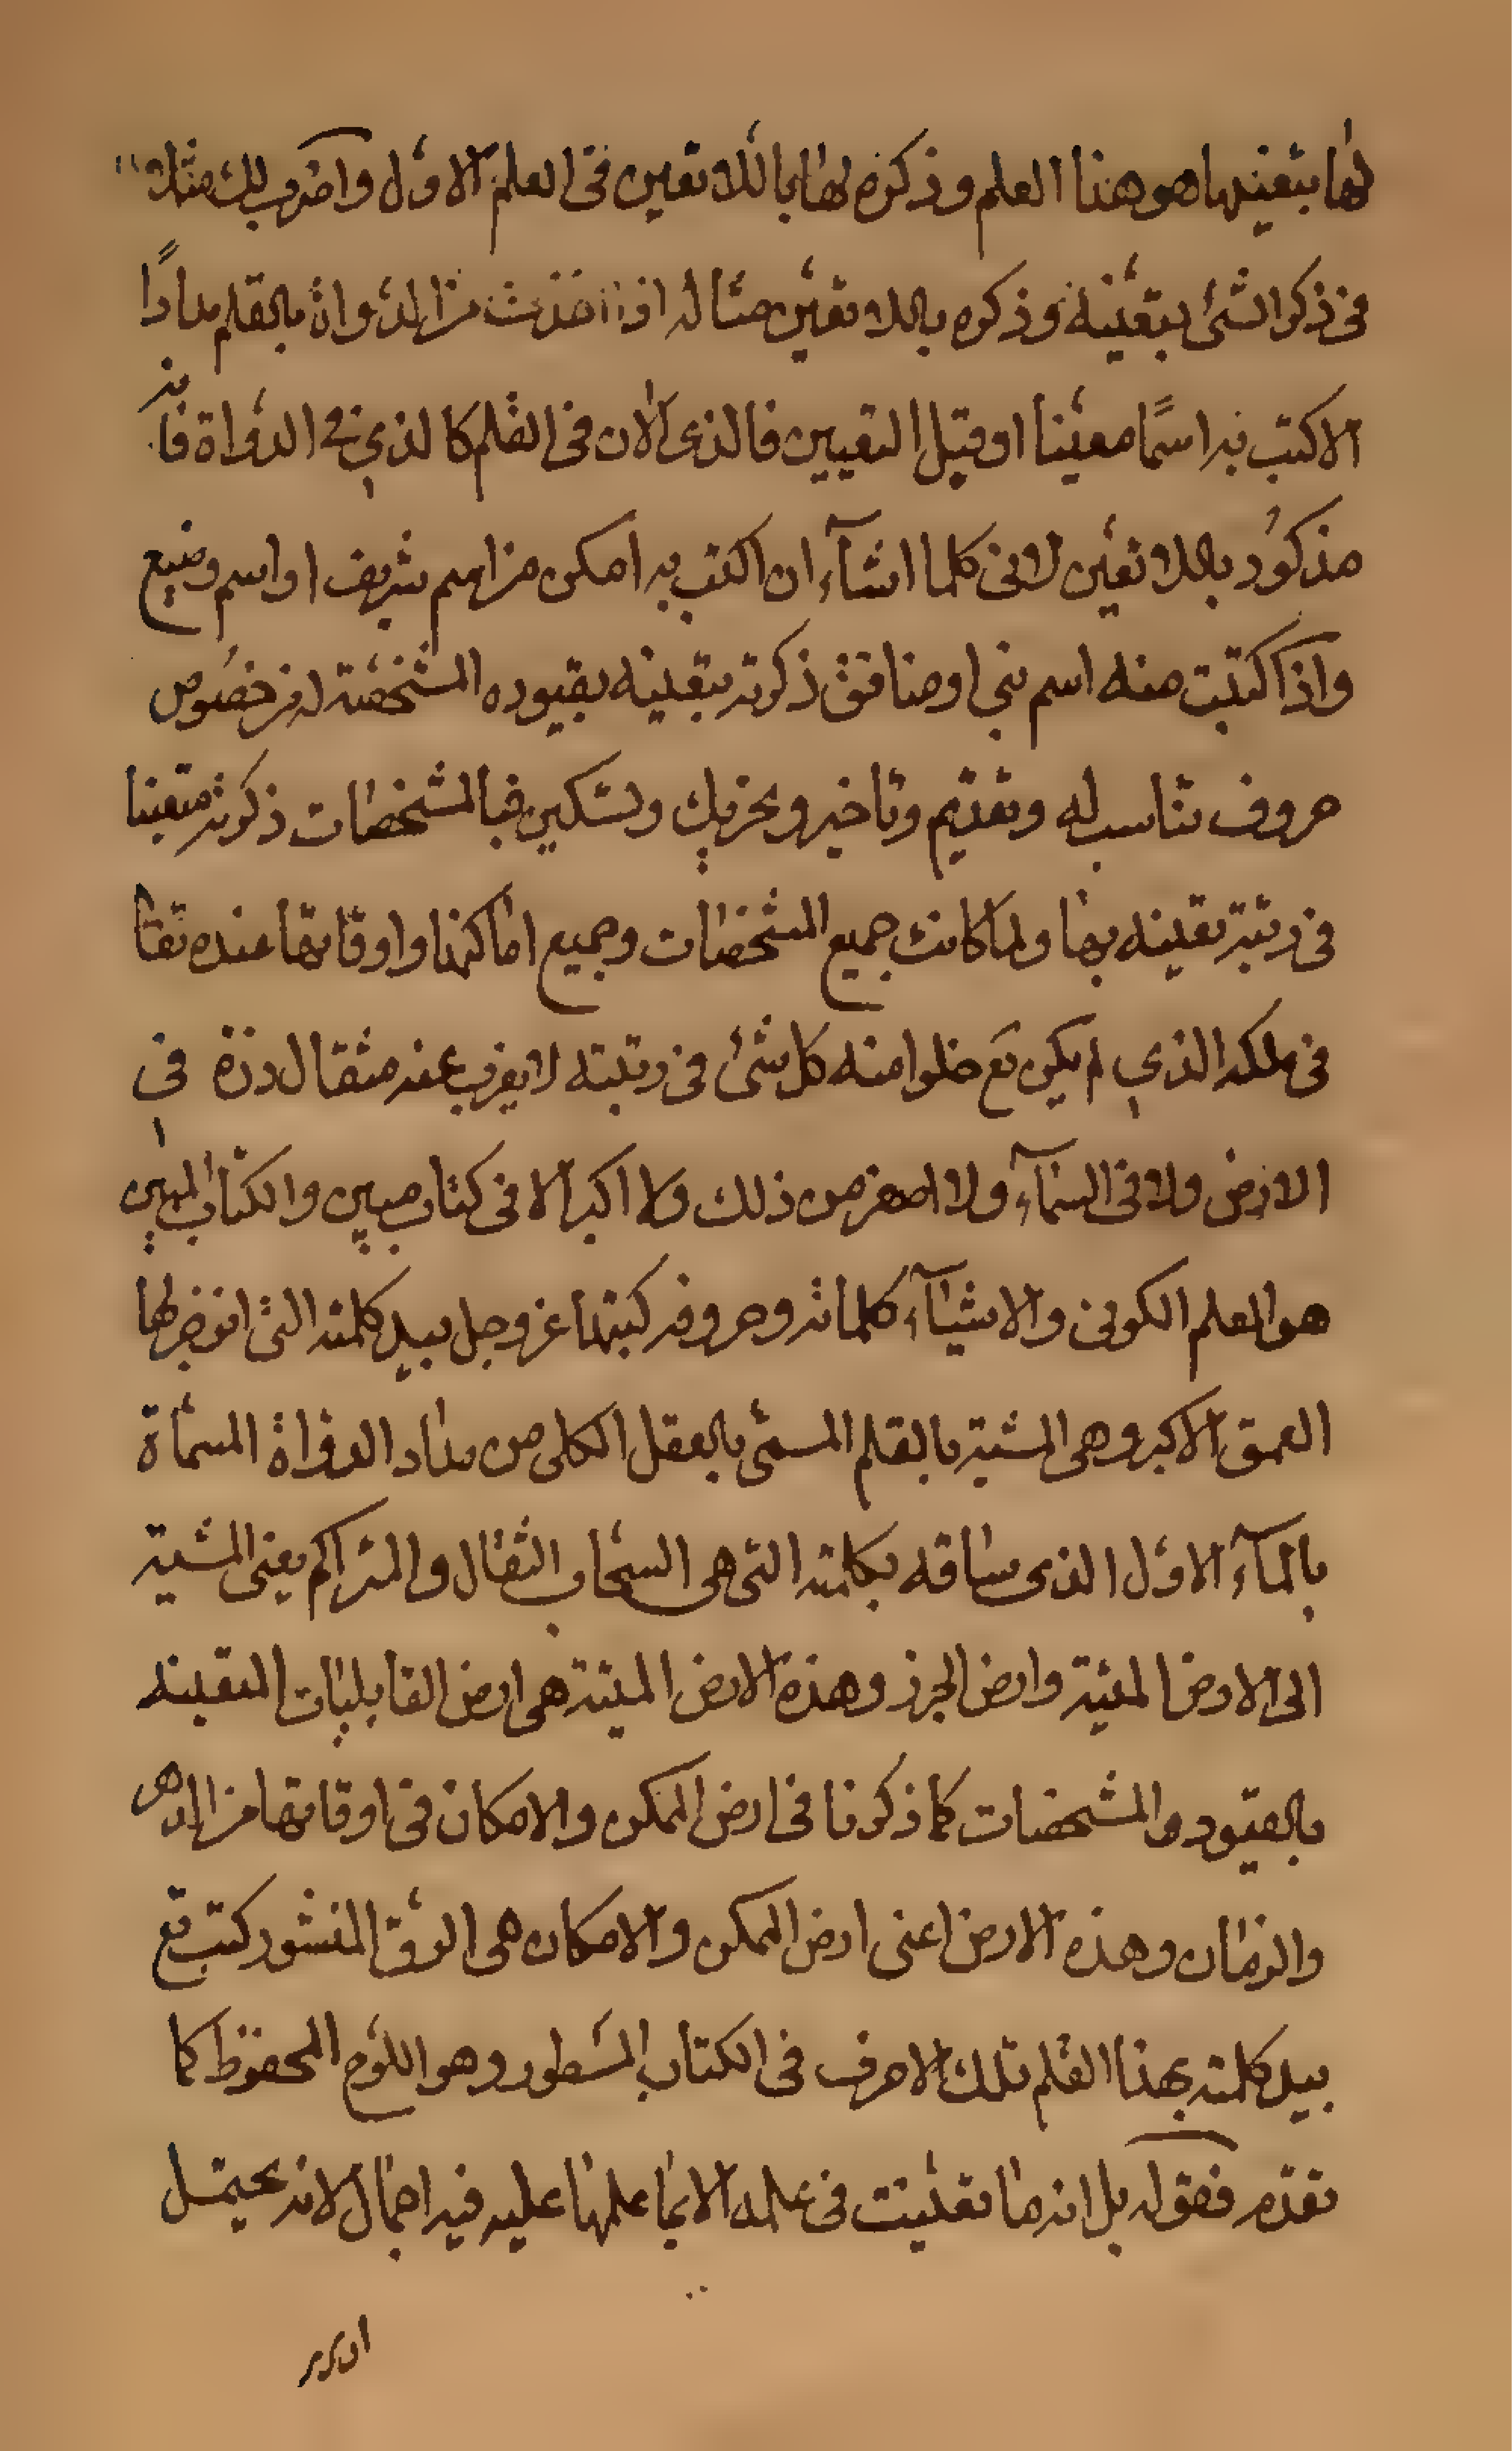 لها بتعينها هو هذا العلم وذكره لها باللا تعين في العلم الاول واضرب لك مثلا
في ذكر الشئ بتعينه وذكره باللا تعين مثاله اذا اخذت من الدواة بالقلم مدادا
لاكتب به اسمًا معينا او قبل التعيين فالذى الان في القلم كالذي في الدواة فانه
مذكور باللا تعين لانى كلما اشآء ان اكتب به امكن من اسم شريف او اسم وضيع
واذا كتبت منه اسم نبي او منافق ذكرته بتعينه بقيوده المشخصة له من خصوص
حروف تناسب له وتقديم وتاخير وتحريك وتسكين فبالمشخصات ذكرته متعينا
في رتبة تعينه بها ولما كانت جميع المشخصات وجميع اماكنها واوقاتها عنده تعا
في ملكه الذي لم يكن تع خلوا منه كل شئ في رتبته لا يعزب عنه مثقال ذرة في
الارض ولا في السمآء ولا اصغر من ذلك ولا اكبر الا في كتاب مبين والكتاب المبين
هو العلم الكونى والاشيآء كلماته وحروفه كتبها عز وجل بيد كلمته التى انزجر لها
العمق الاكبر وهى المشية بالقلم المسمى بالعقل الكلى من مداد الدواة المسماة
بالمآء الاول الذى ساقه بكلمته التى هى السحاب الثقال والمتراكم يعنى المشية
الى الارض الميتة وارض الجرز وهذه الارض الميتة هى ارض القابليات المتعينه
بالقيود والمشخصات كما ذكرنا في ارض الممكن والامكان في اوقاتها من الدهر
والزمان وهذه الارض اعنى ارض الممكن والامكان هى الرق المنشور كتب تع
بيد كلمته بهذا القلم تلك الاحرف في الكتاب المسطور وهو اللوح المحفوظ كما
تقدم فقوله بل انه ما تعينت في علمه الا بما علمها عليه فيه اجمال لانه يحتمل